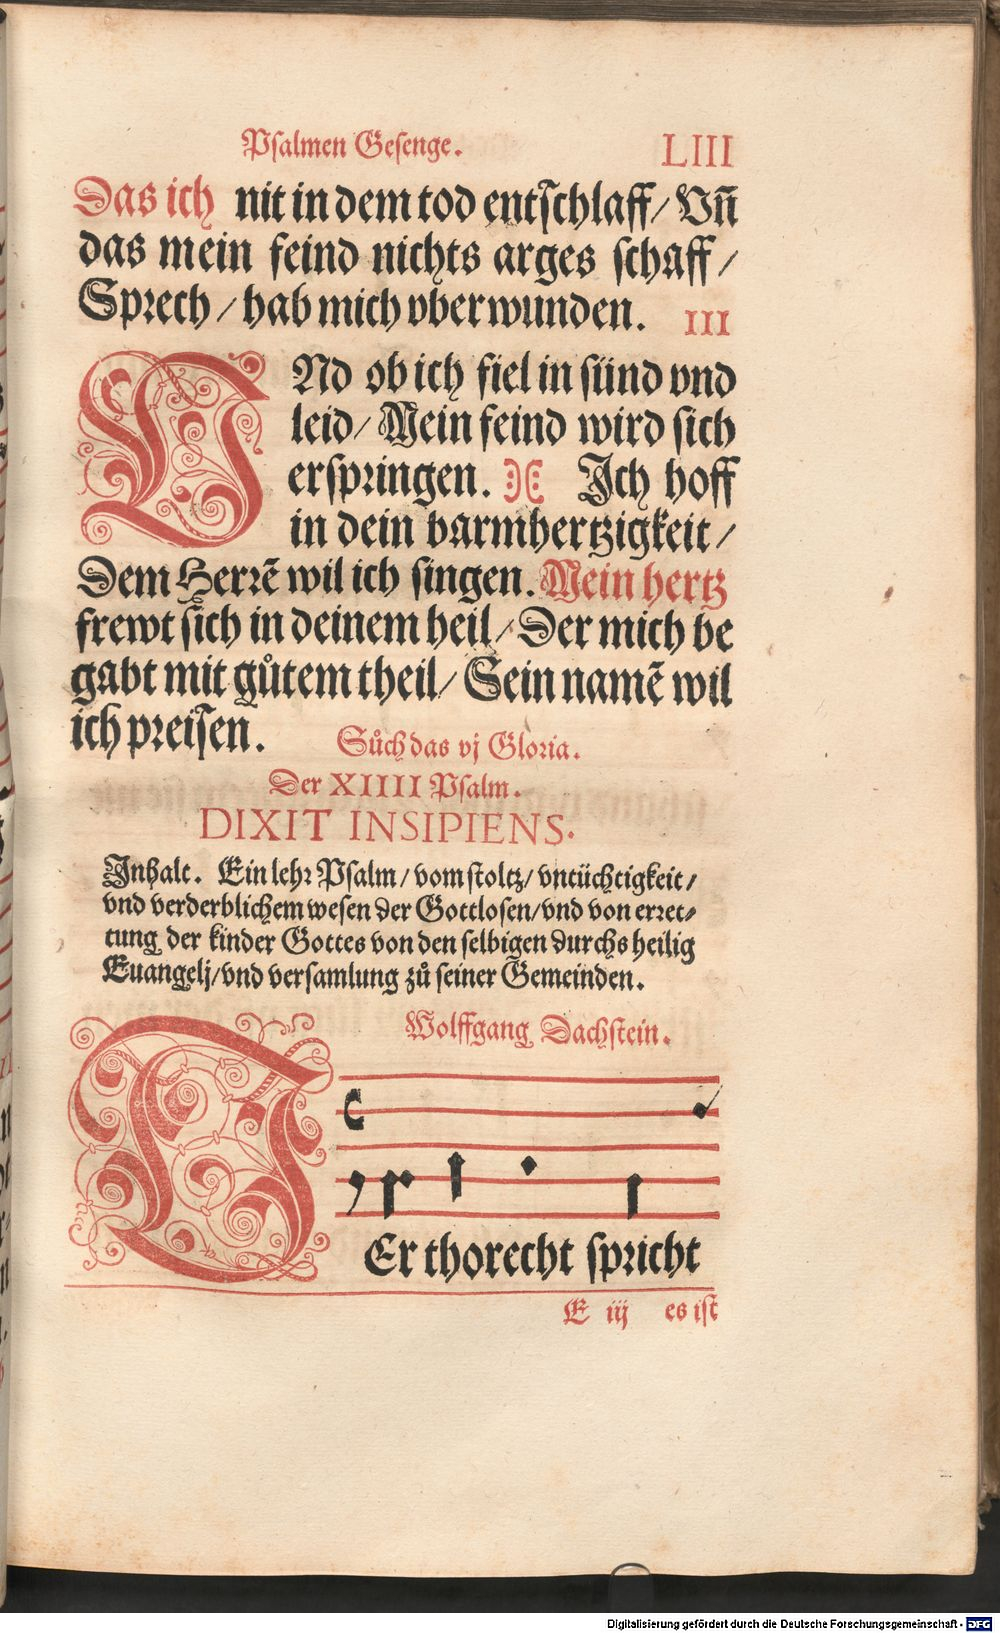 Psalmen Gesenge. LIII
Das ich nit in dem tod entschlaff / Vñ
das mein feind nichts arges schaff /
Sprech / hab mich vberwunden. III
VNd ob ich fiel in sünd vnd
leid / Mein feind wird sich
erspringen. Ich hoff
in dein barmhertzigkeit /
Dem Herrẽ wil ich singen. Mein hertz
frewt sich in deinem heil / Der mich be
gabt mit gůtem theil / Sein namẽ wil
ich preisen. Sůch das vj Gloria.
Der XIIII Psalm.
DIXIT INSIPIENS.
Inhalt. Ein lehr Psalm / vom stoltz / vntüchtigkeit /
vnd verderblichem wesen der Gottlosen / vnd von erret⸗
tung der kinder Gottes von den selbigen durchs heilig
Euangelj / vnd versamlung zů seiner Gemeinden.
Wolffgang Dachstein.
DEr thorecht spricht
E iij es ist
Digitalisierung gefördert durch die Deutsche Forschungsgemeinschaft - DFG